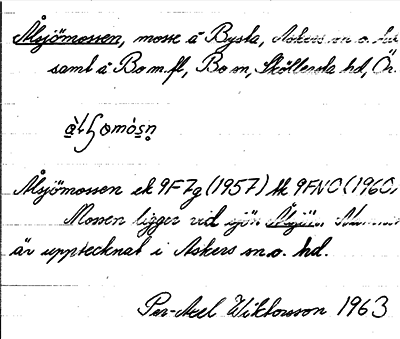 Älsjömossen, mosse å Bysta, Askers sn o. hd
samt å Bo m.fl, Bo sn, Sköllersta hd, Ör.
Älsjömossen ek 9F7g (1957) tk 9FNO (1960)
Mossen ligger vid sjön Älsjön.
är upptecknat i Askers sn o. hd.
Per-Axel Wiktorsson 1963